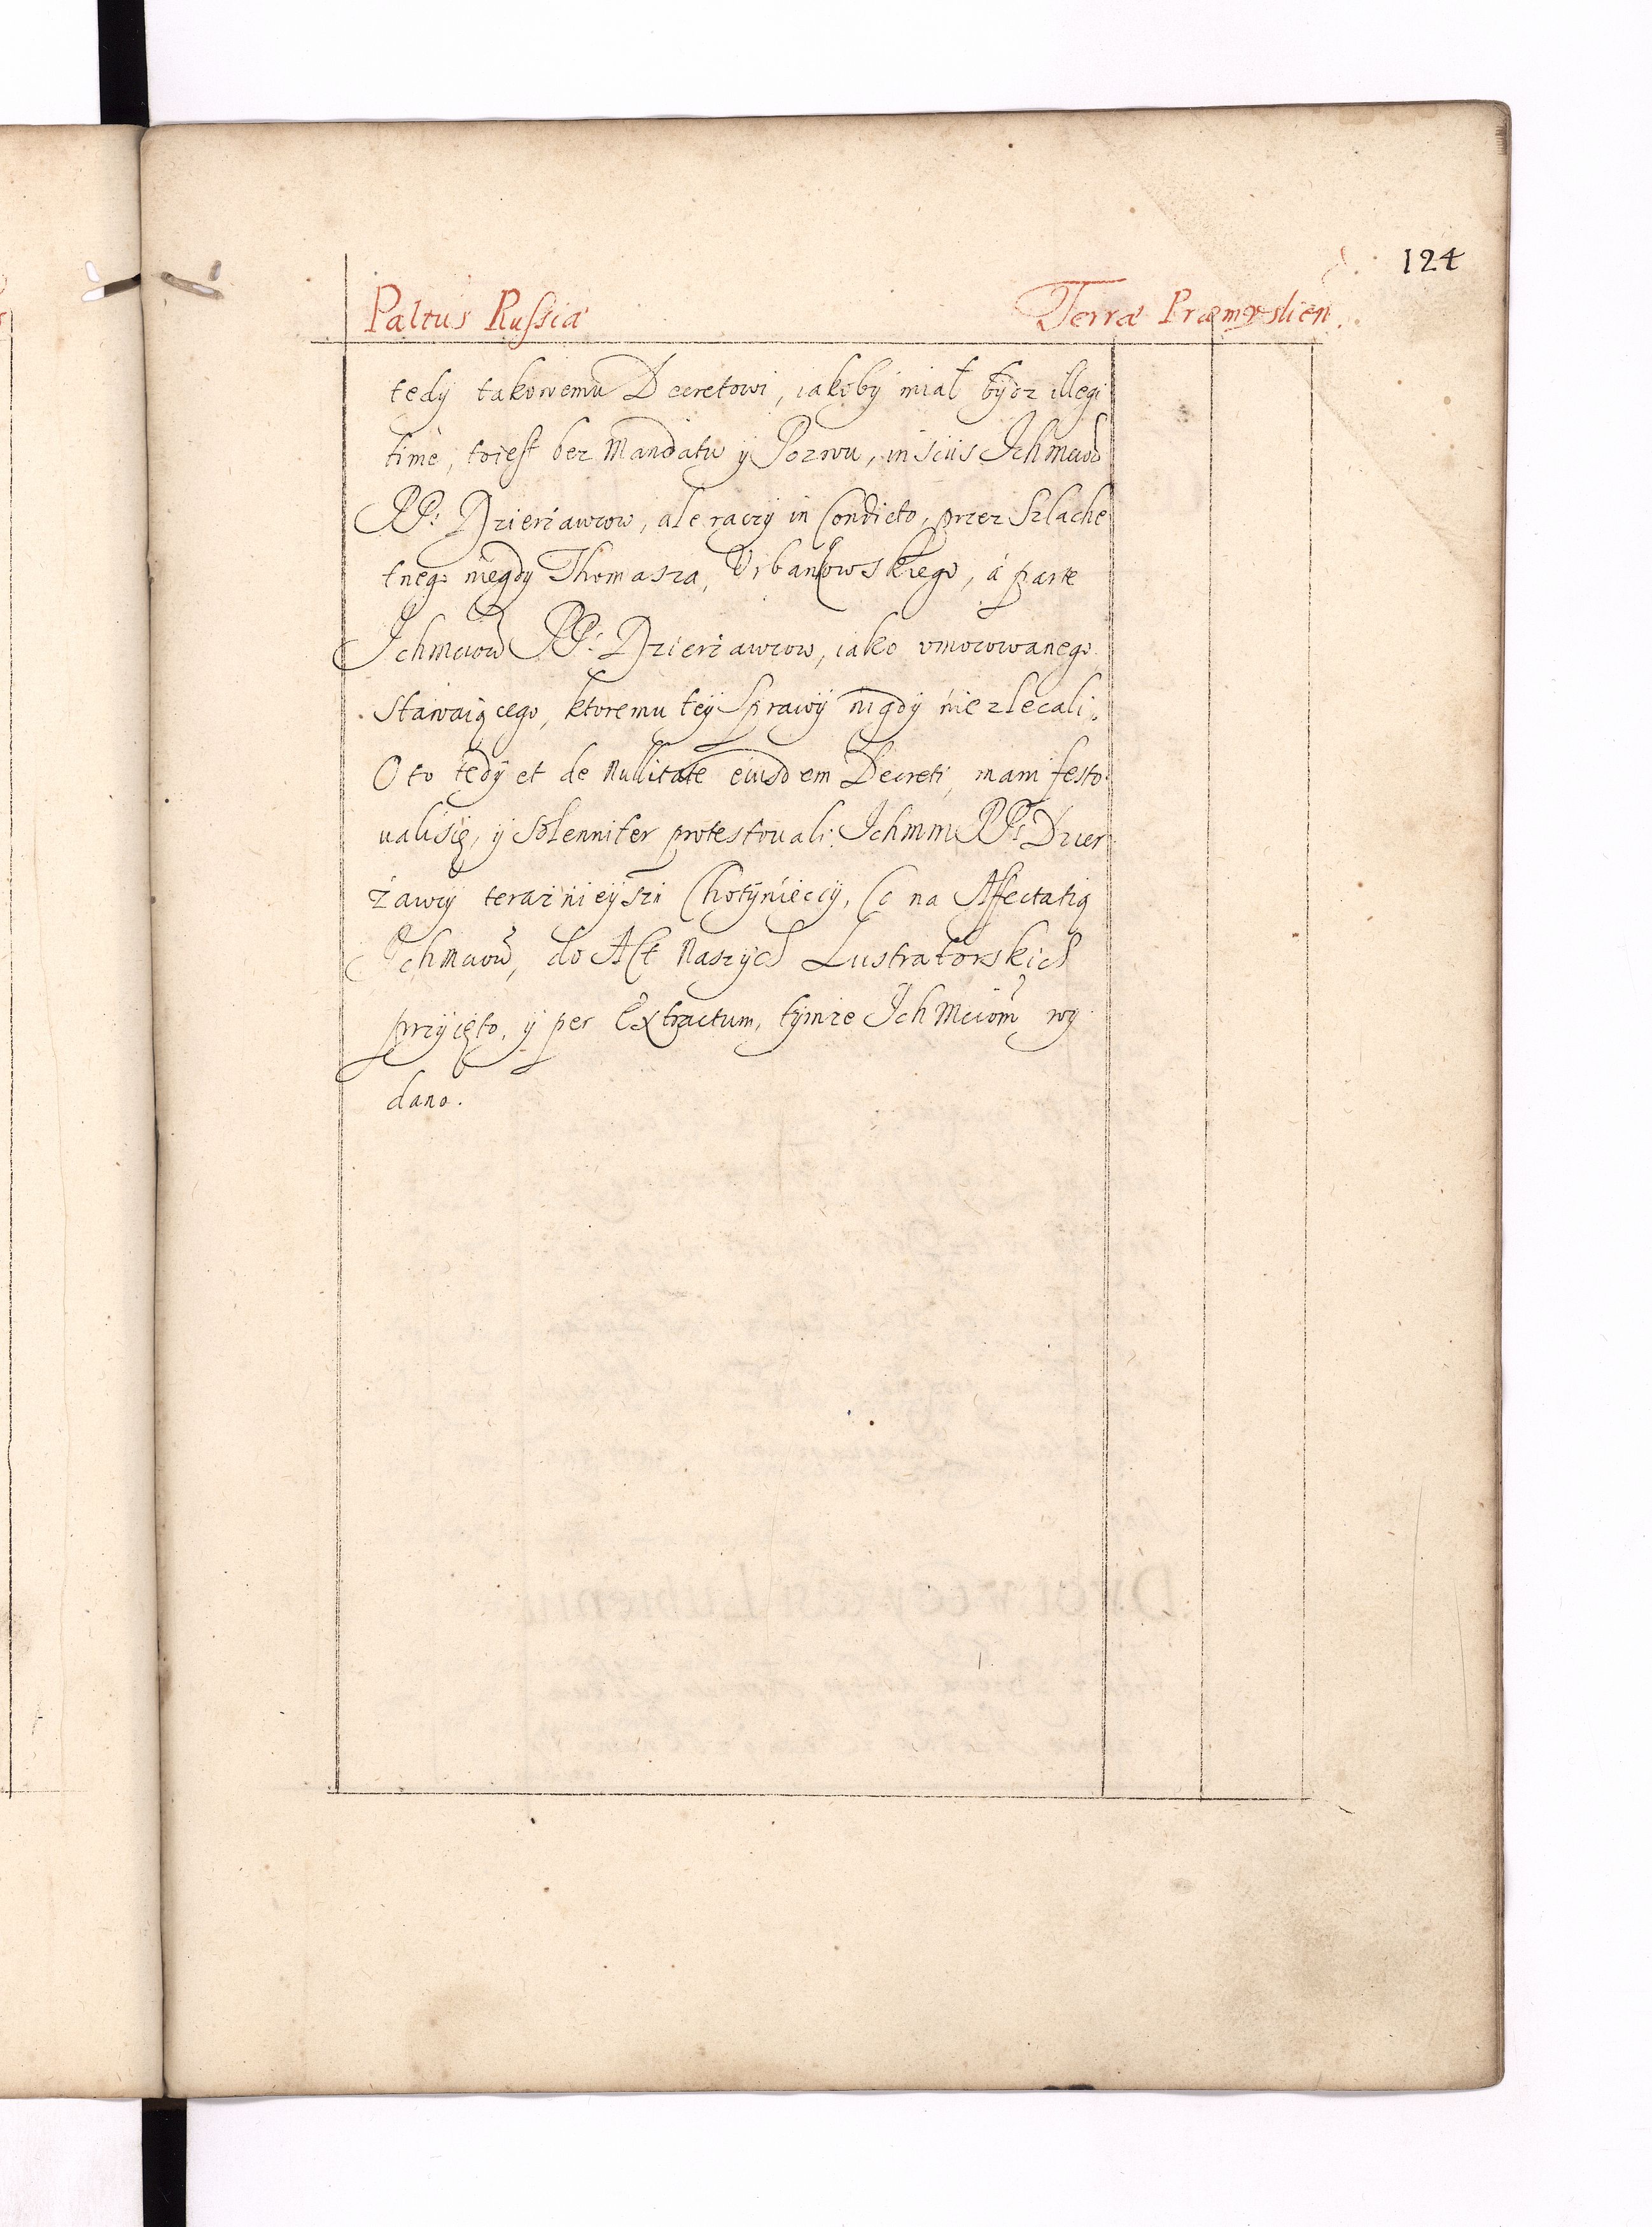 124
Paltus Russiæ Terræ Præmysslien.
tedÿ takowemu Decretowi, iakobÿ miał bÿdz illegi
timè, toiest bez Mandatu ÿ Pozwu, insciis Ichmciow
PP: Dzierżawcow, ale raczÿ in Condicto, przez Szlache
tneg: niegdy Thomasza, Urbankowskiego, á parte
Ichmciow PP: Dzierżawcow, iako vmocowanego
stawaiącego, ktoremu teÿ Sprawÿ nigdÿ niezlecali.
O to tedÿ et de Nullitate eiusdem Decreti, manifesto
ualisię, ÿ Solenniter protestouali: Ichmm PP: Dzier
żawcÿ teraźnieÿszi Chotÿnieccÿ, Co na Affectatią
Ichmciow, do Act Naszÿch Lustratorskich
przÿięto, ÿ per Extractum, tÿmże Ich Mciom wÿ
dano.